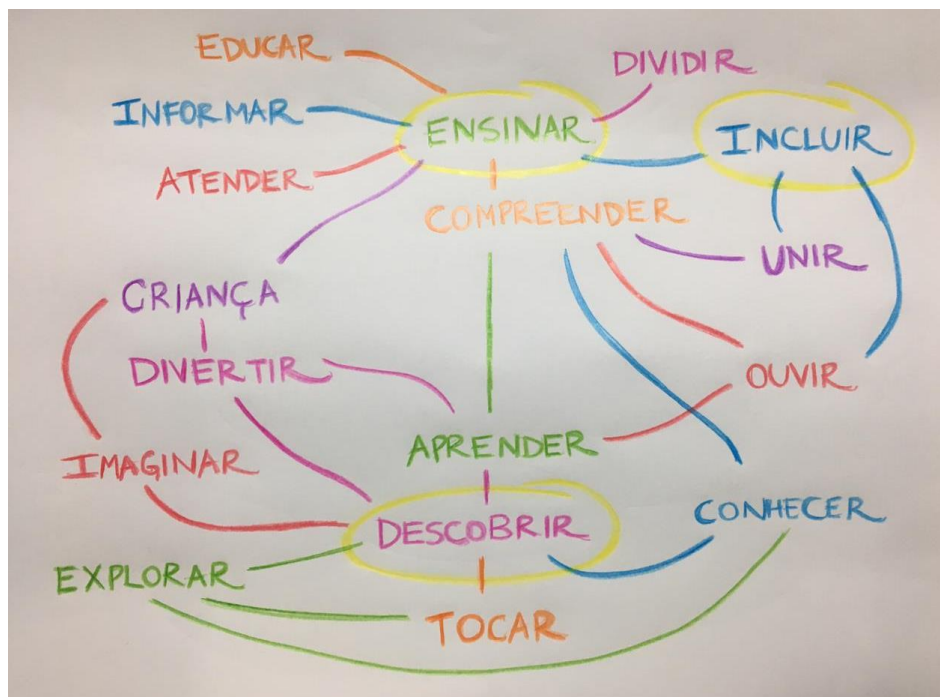 EDUCAR
DIVIDIR
INFORMAR
ENSINAR
INCLUIR
ATENDER
COMPREENDER
UNIR
CRIANÇA
DIVERTIR
OUVIR
APRENDER
IMAGINAR
CONHECER
DESCOBRIR
EXPLORAR
TOCAR